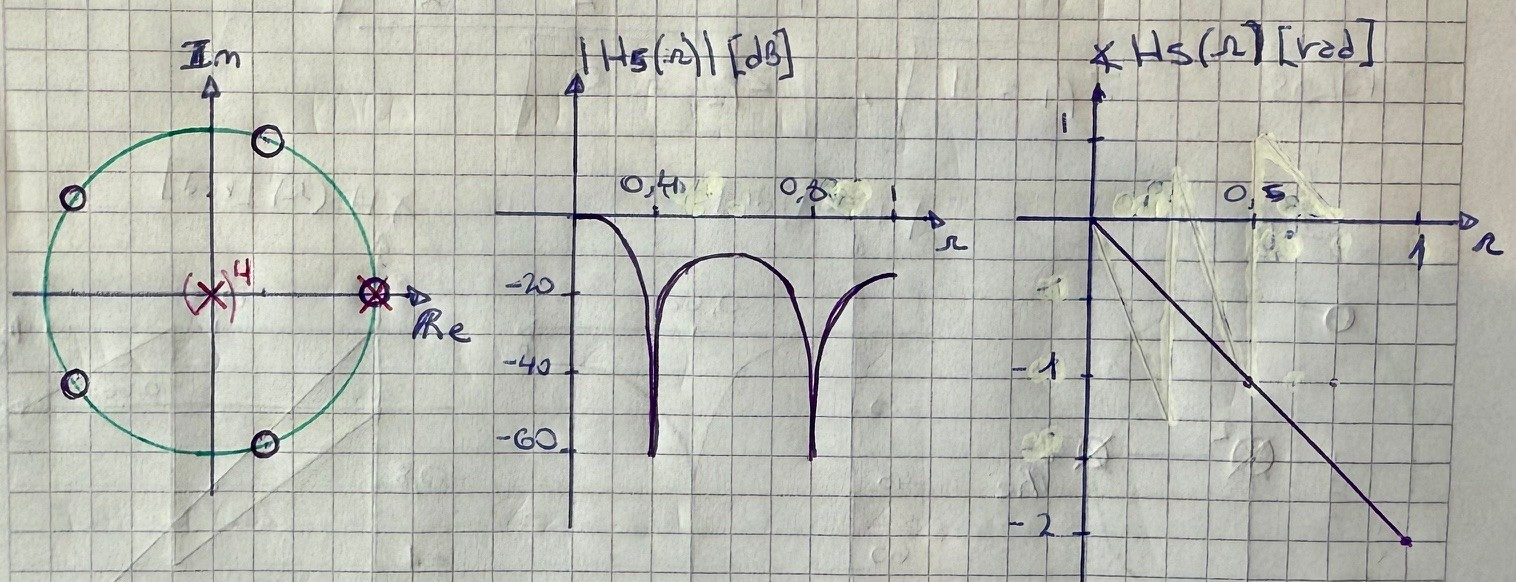 Im
( )4
Re
|Hs(Ω)| [dB]
0,4
0,8
1
Ω
-20
-40
-60
∡ Hs(Ω) [rad]
1
0,5
1
Ω
-1
-2